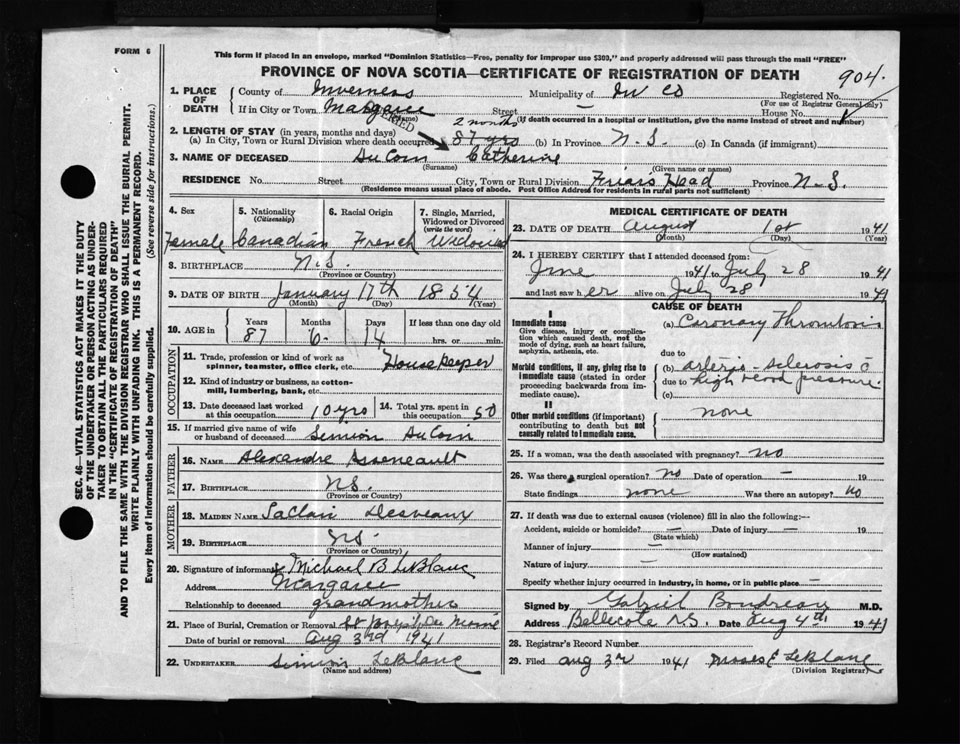 FORM 6
904.
This form if placed in an envelope, marked "Dominion Statistics—Free, penalty for improper use $300," and properly addressed will pass through the mail "FREE"
PROVINCE OF NOVA SCOTIA—CERTIFICATE OF REGISTRATION OF DEATH
1. PLACE OF DEATH
County of Inverness Municipality of Inv Co Registered No.
(For use of Registrar General only)
If in City or Town Margaree Street House No.
(Name) (If death occurred in a hospital or institution, give the name instead of street and number)
2. LENGTH OF STAY (in years, months and days) 2 months
(a) In City, Town or Rural Division where death occurred 87 yrs (b) In Province N. S. (c) In Canada (if immigrant)
3. NAME OF DECEASED AuCoin Catherine
(Surname) (Given name or names)
RESIDENCE No. Street City, Town or Rural Division Friar's Head Province N-S.
(Residence means usual place of abode. Post Office Address for residents in rural parts not sufficient)
4. Sex 5. Nationality (Citizenship) 6. Racial Origin 7. Single, Married, Widowed or Divorced (write the word)
Female Canadian French Widowed
8. BIRTHPLACE N.S.
(Province or Country)
9. DATE OF BIRTH January 17th 1854
(Month) (Day) (Year)
10. AGE in Years Months Days If less than one day old
87 6 14 hrs. or min.
OCCUPATION
11. Trade, profession or kind of work as spinner, teamster, office clerk, etc. House keeper
12. Kind of industry or business, as cotton-mill, lumbering, bank, etc.
13. Date deceased last worked at this occupation 10 yrs 14. Total yrs. spent in this occupation 50
15. If married give name of wife or husband of deceased Simion AuCoin
FATHER
16. NAME Alexandre Arseneault
17. BIRTHPLACE N.S.
(Province or Country)
MOTHER
18. MAIDEN NAME Desveaux
19. BIRTHPLACE N.S.
(Province or Country)
20. Signature of informant Michael B LeBlanc
Address Margaree
Relationship to deceased grandmother
21. Place of Burial, Cremation or Removal
Date of burial or removal Aug 3rd 1941
22. UNDERTAKER Simion LeBlanc
(Name and address)
MEDICAL CERTIFICATE OF DEATH
23. DATE OF DEATH August 1st 1941
(Month) (Day) (Year)
24. I HEREBY CERTIFY that I attended deceased from:
June 1941 to July 28 1941
and last saw her alive on July 28 1941
CAUSE OF DEATH
I
Immediate cause
Give disease, injury or complication which caused death, not the mode of dying, such as heart failure, asphyxia, asthenia, etc.
(a) Coronary Thrombosis
due to
Morbid conditions, if any, giving rise to immediate cause (stated in order proceeding backwards from immediate cause).
(b) arterio-sclerosis c̄
due to high blood pressure.
(c)
II
Other morbid conditions (if important) contributing to death but not causally related to immediate cause.
none
25. If a woman, was the death associated with pregnancy? no
26. Was there a surgical operation? no Date of operation — 19
State findings none Was there an autopsy? no
27. If death was due to external causes (violence) fill in also the following:—
Accident, suicide or homicide? — Date of injury — 19
(State which)
Manner of injury —
(How sustained)
Nature of injury —
Specify whether injury occurred in industry, in home, or in public place —
Signed by Gabriel Boudreau M.D.
Address Bellecote N.S. Date Aug 4th 1941
28. Registrar's Record Number
29. Filed Aug 3rd 1941 Moses E LeBlanc
(Division Registrar)
SEC. 46—VITAL STATISTICS ACT MAKES IT THE DUTY
OF THE UNDERTAKER OR PERSON ACTING AS UNDER-
TAKER TO OBTAIN ALL THE PARTICULARS REQUIRED
IN THE "CERTIFICATE OF REGISTRATION OF DEATH"
AND TO FILE THE SAME WITH THE DIVISION REGISTRAR WHO SHALL ISSUE THE BURIAL PERMIT.
WRITE PLAINLY WITH UNFADING INK. THIS IS A PERMANENT RECORD.
Every item of information should be carefully supplied. (See reverse side for instructions.)